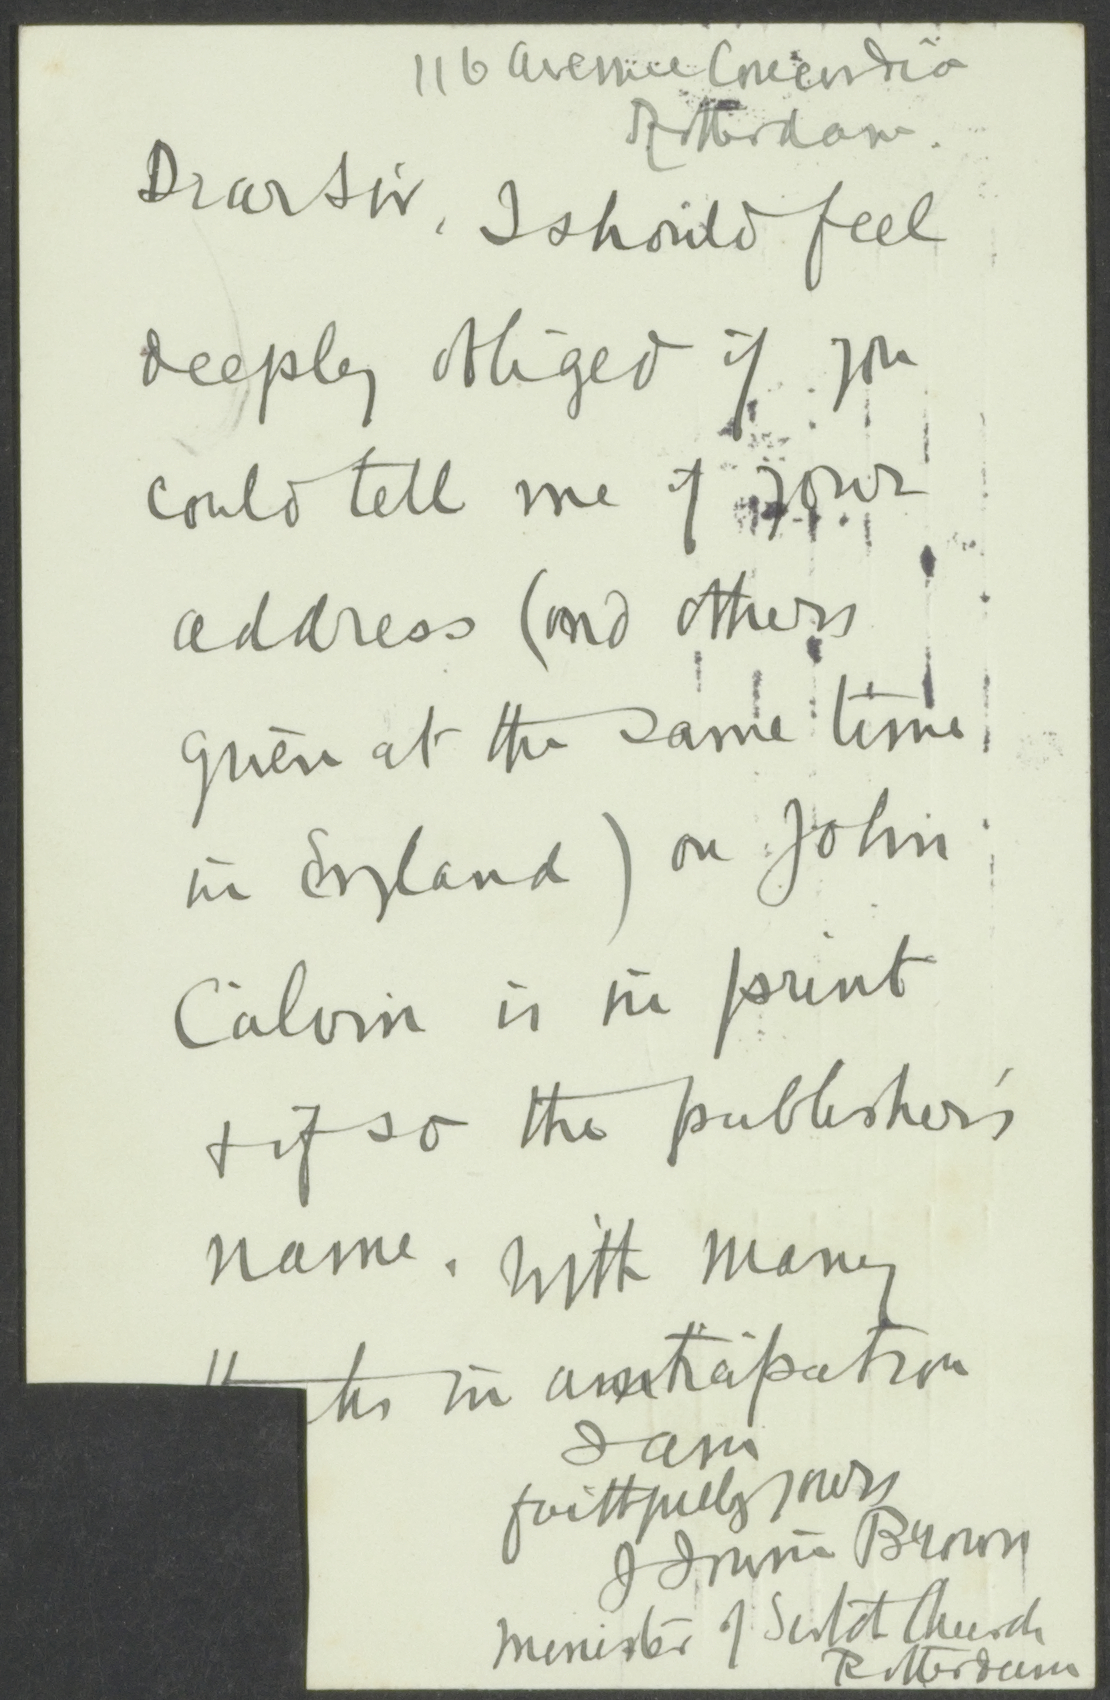 116 Avenue Concordia
Rotterdam.
Dear Sir, I should feel
deeply obliged if you
could tell me if your
address (and others
given at the same time
in England) on John
Calvin is in print
& if so the publisher's
name. With many
in anticipation
I am
faithfully yours
J Irwin Brown
Minister of Scotch Church
Rotterdam